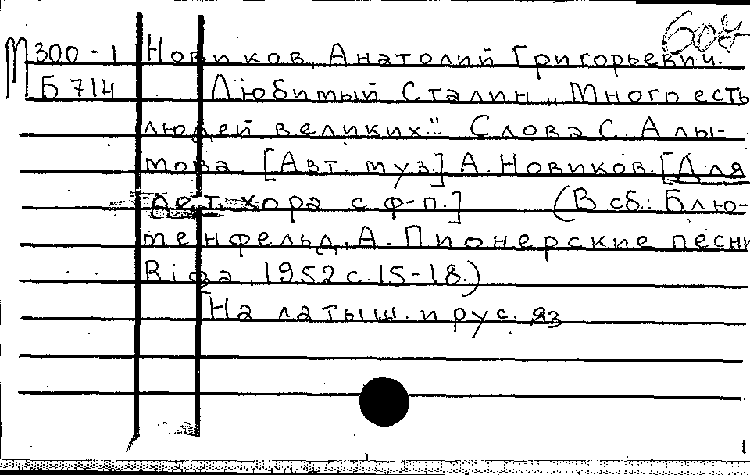 607
М 300-1 Новиков, Анатолий Григорьевич.
Б 714 Любимый Сталин „Много есть
людей великих". Слова С. Алы-
мова [Авт. муз] А. Новиков. [Для
дет. хора с ф-п.] (В сб.: Блю-
менфельд, А. Пионерские песни
Riga 1952 с. 15-18.)
На латыш. и рус. яз